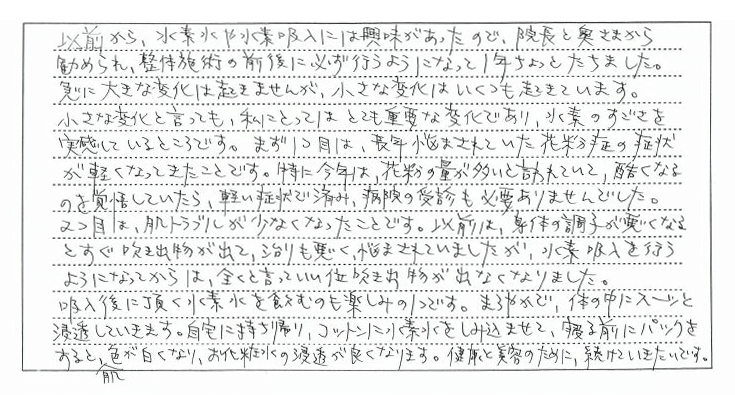 以前から、水素水や水素吸入には興味があったので、院長と奥さまから
勧められ、整体施術の前後に必ず行うようになって1年ちょっとたちました。
急に大きな変化は起きませんが、小さな変化はいくつも起きています。
小さな変化と言っても、私にとってはとても重要な変化であり、水素のすごさを
実感しているところです。まず1つ目は、長年悩まされていた花粉症の症状
が軽くなってきたことです。特に今年は、花粉の量が多いと言われていて、酷くなる
のを覚悟していたら、軽い症状で済み、病院の受診も必要ありませんでした。
2つ目は、肌トラブルが少なくなったことです。以前は、身体の調子が悪くなる
とすぐ吹き出物が出て、治りも悪く、悩まされていましたが、水素吸入を行う
ようになってからは、全くと言っていい位吹き出物が出なくなりました。
吸入後に頂く水素水を飲むのも楽しみの1つです。まろやかで、体の中にスーッと
浸透していきます。自宅に持ち帰り、コットンに水素水をしみ込ませて、寝る前にパックを
すると、肌色が白くなり、お化粧水の浸透が良くなります。健康と美容のために、続けていきたいです。